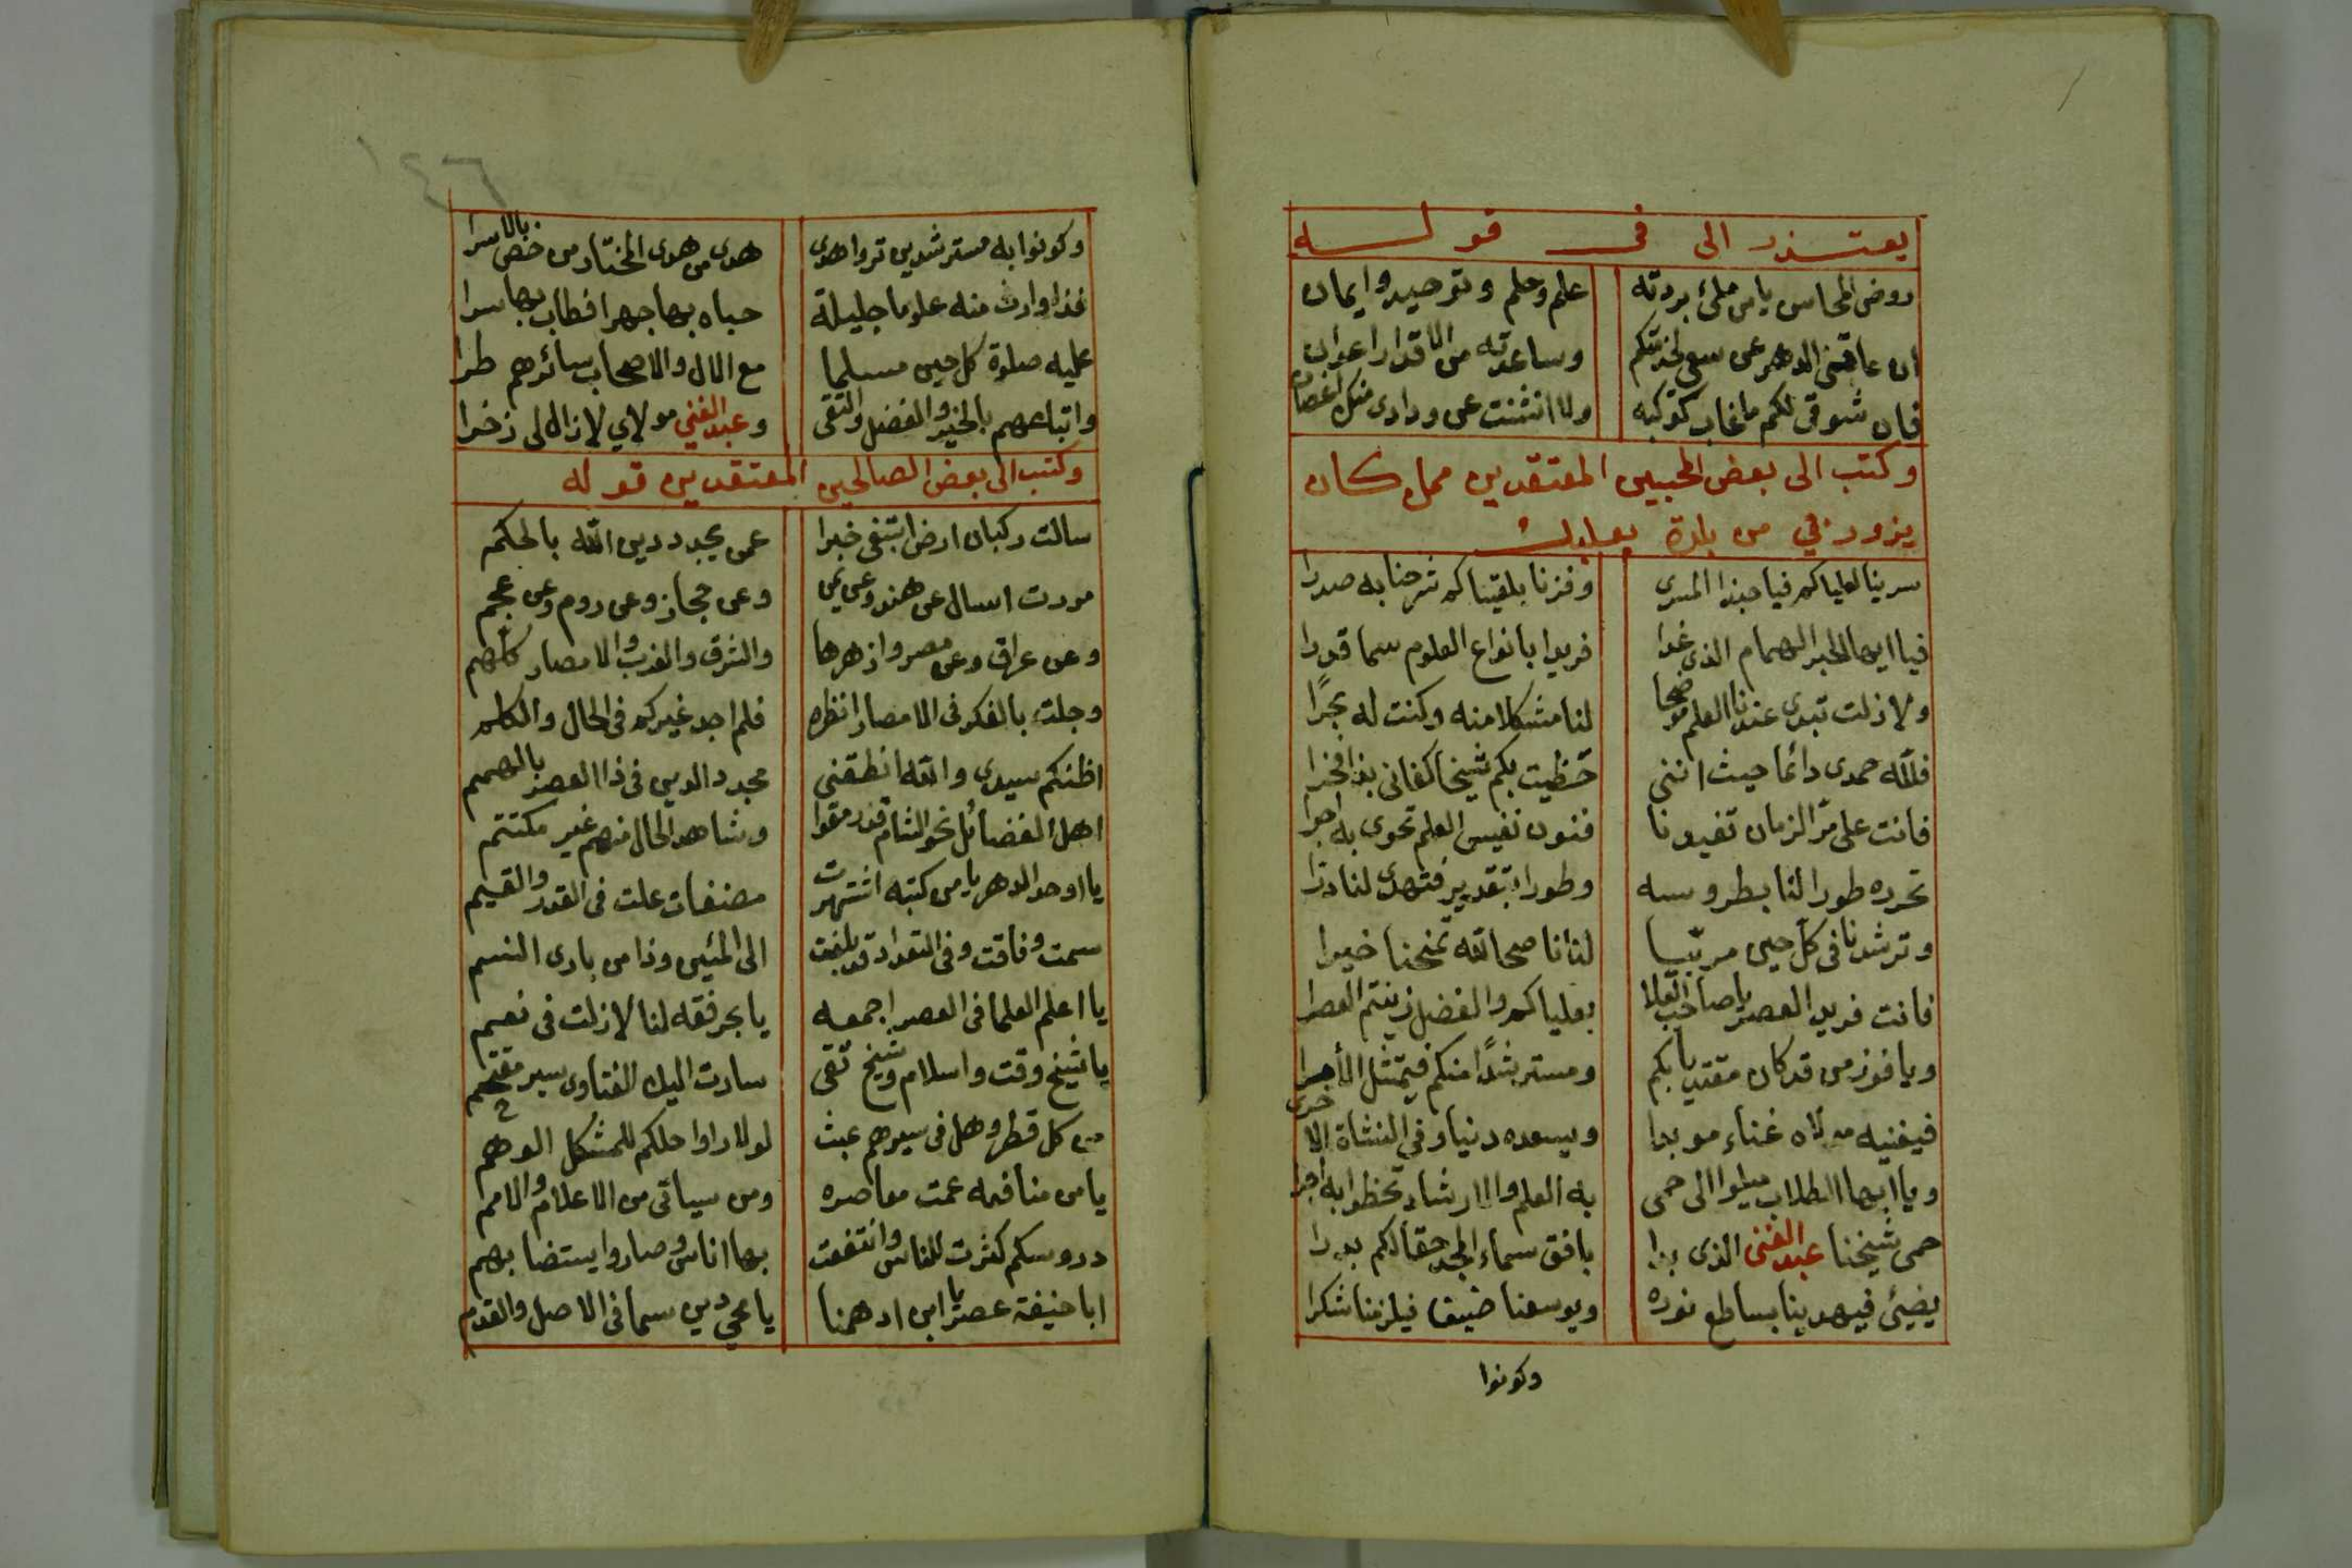 يعتذر الى في قوله
روض المحاسن يا من ملئ بردته علم وحلم وتوحيد وايمان
ان عاقني الدهر عن سعي لخدمتكم وساعدته من الاقدار اعوان
فان شوقي لكم ما غاب كوكبه ولا انثنت عن ودادي منك اغصان
وكتب الى بعض المحبين المعتقدين ممن كان
يزورني من بلدة بعلبك
سرينا لعلياكم فيا حبذا المسرى وفزنا بلقياكم شرحنا به صدرا
فيا ايها الحبر الهمام الذي غدا فريدا بانواع العلوم سما قدرا
ولا زلت تبدي عندنا العلم موضحا لنا مشكلا منه وكنت له بحرًا
فلله حمدي دائما حيث انني حظيت بكم شيخا كفاني بذا فخرا
فانت على مر الزمان تفيدنا فنون نفيس العلم تحوى به اجرا
تحرره طورا لنا بطروسه وطورا بتقدير فتهدي لنا درا
وترشدنا في كل حين مربيا لنا ناصحا لله تمنحنا خيرا
فانت فريد العصر يا صاحب العلا بعلياكم والفضل زينتم العصرا
ويا فوز من قد كان مقتديا بكم ومسترشدًا منكم فيمتثل الأمرا
فيغنيه مولاه غناء موبدا ويسعده دنيا وفي النشاة الاخرى
ويا ايها الطلاب ميلوا الى حمى به العلم والارشاد تحظوا به اجرا
حمى شيخنا عبد الغني الذي بدا بافق سماء المجد حقا لكم بدرا
يضيئ فيهدينا بساطع نوره ويوسعنا ضيفا فيلزمنا شكرا
وكونوا
وكونوا به مسترشدين تروا هدى هدى من هدى المختار من خص بالاسرا
غدا وارث منه علوما جليلة حباه بها جهرا فطاب بها سرا
عليه صلوة كل حين مسلما مع الال والاصحاب سائرهم طرا
واتباعهم بالخير والفضل والتقى وعبد الغني مولاي لا زال لي ذخرا
وكتب الى بعض الصالحين المعتقدين قوله
سالت ركبان ارض ابتغي خبرا عمن يجدد دين الله بالحكم
مررت اسال عن هند وعن يمن وعن حجاز وعن روم وعن عجم
وعن عراق وعن مصر وازهرها والشرق والغرب والامصار كلهم
وجلت بالفكر في الامصار انظره فلم اجد غيركم في الحال والكلم
اظنكم سيدي والله انطقني مجدد الدين في ذا العصر بالهمم
اهل الفضائل نحو الشام قد رمقوا وشاهد الحال منهم غير مكتتم
يا اوحد الدهر يا من كتبه اشتهرت مصنفات علت في القدر والقيم
سمت وفاقت وفي التعداد قد بلغت الى المئين وذا من بارى النسم
يا اعلم العلما في العصر اجمعه يا بحر فقه لنا لا زلت في نعم
يا شيخ وقت واسلام وشيخ تقى سارت اليك الفتاوى سير مقتحم
من كل قطر وهل في سيرهم عبث لولا راوا حلكم للمشكل الوهم
يا من منافعه عمت معاصره ومن سياتي من الاعلام والامم
دروسكم كثرت للناس وانتفعت بها اناس وصاروا يستضا بهم
ابا حنيفة عصر يا ابن ادهمنا يا محي دين سما في الاصل والقدم